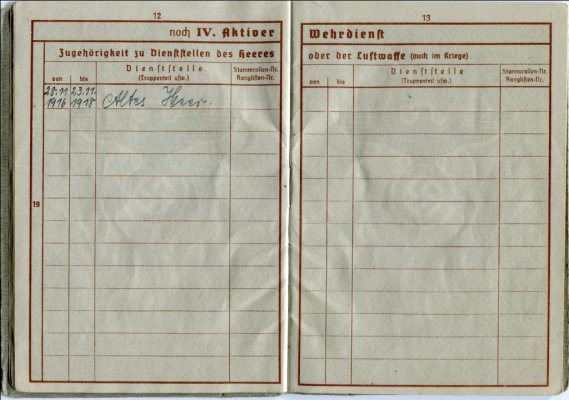 12
noch IV. Aktiver
Zugehörigkeit zu Dienststellen des Heeres
von
bis
Dienststelle
(Truppenteil usw.)
Stammrollen-Nr.
Ranglisten-Nr.
28.11. 23.11.
1916 1918 Altes Heer.
19
13
Wehrdienst
oder der Luftwaffe (auch im Kriege)
von
bis
Dienststelle
(Truppenteil usw.)
Stammrollen-Nr.
Ranglisten-Nr.